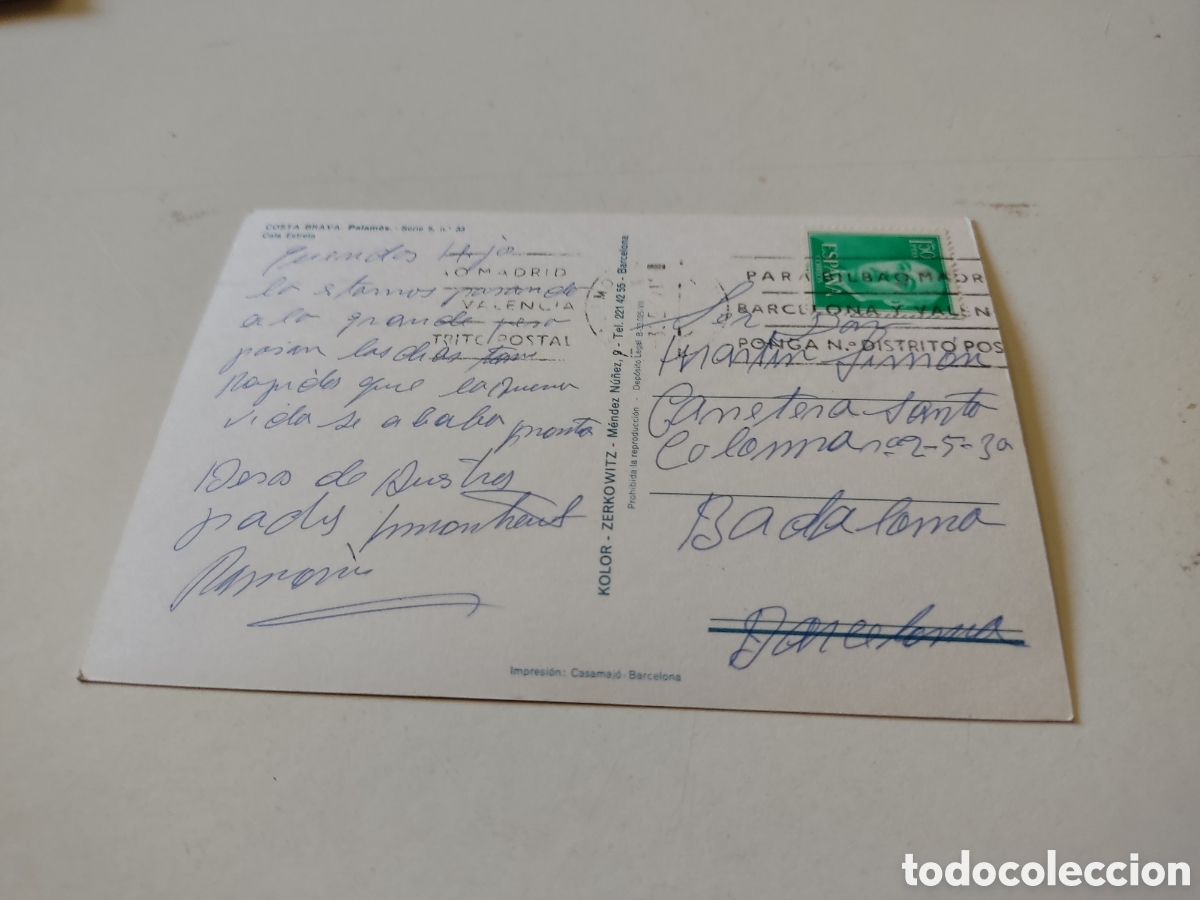 COSTA BRAVA. Palamós. Serie 5, n.° 33
Cala Estreta
Queridos Hijo
lo estamos pasando
a lo grande pero
pasan los dias tan
Rapidos que la Buena
vida se a caba pronto
Besos de Buestros
padres
Ramón
AO MADRID
VALENCIA
TRITO POSTAL
KOLOR - ZERKOWITZ - Méndez Núñez, 9 - Tel. 221 42 55 - Barcelona
Prohibida la reproducción - Depósito Legal B.
Impresión: Casamajó - Barcelona
ESPAÑA
1'50
PARA BILBAO MADR
BARCELONA Y VALEN
PONGA N.º DISTRITO POS
Martin Simon
Carretera Santa
Coloma nº 2-5-3a
Badalona
Barcelona
todocoleccion